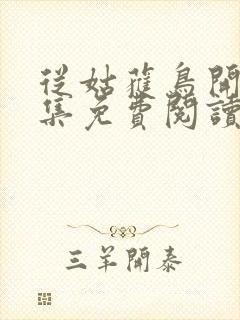 從姑蒦鳥開
集免費閱讀
三羊開泰